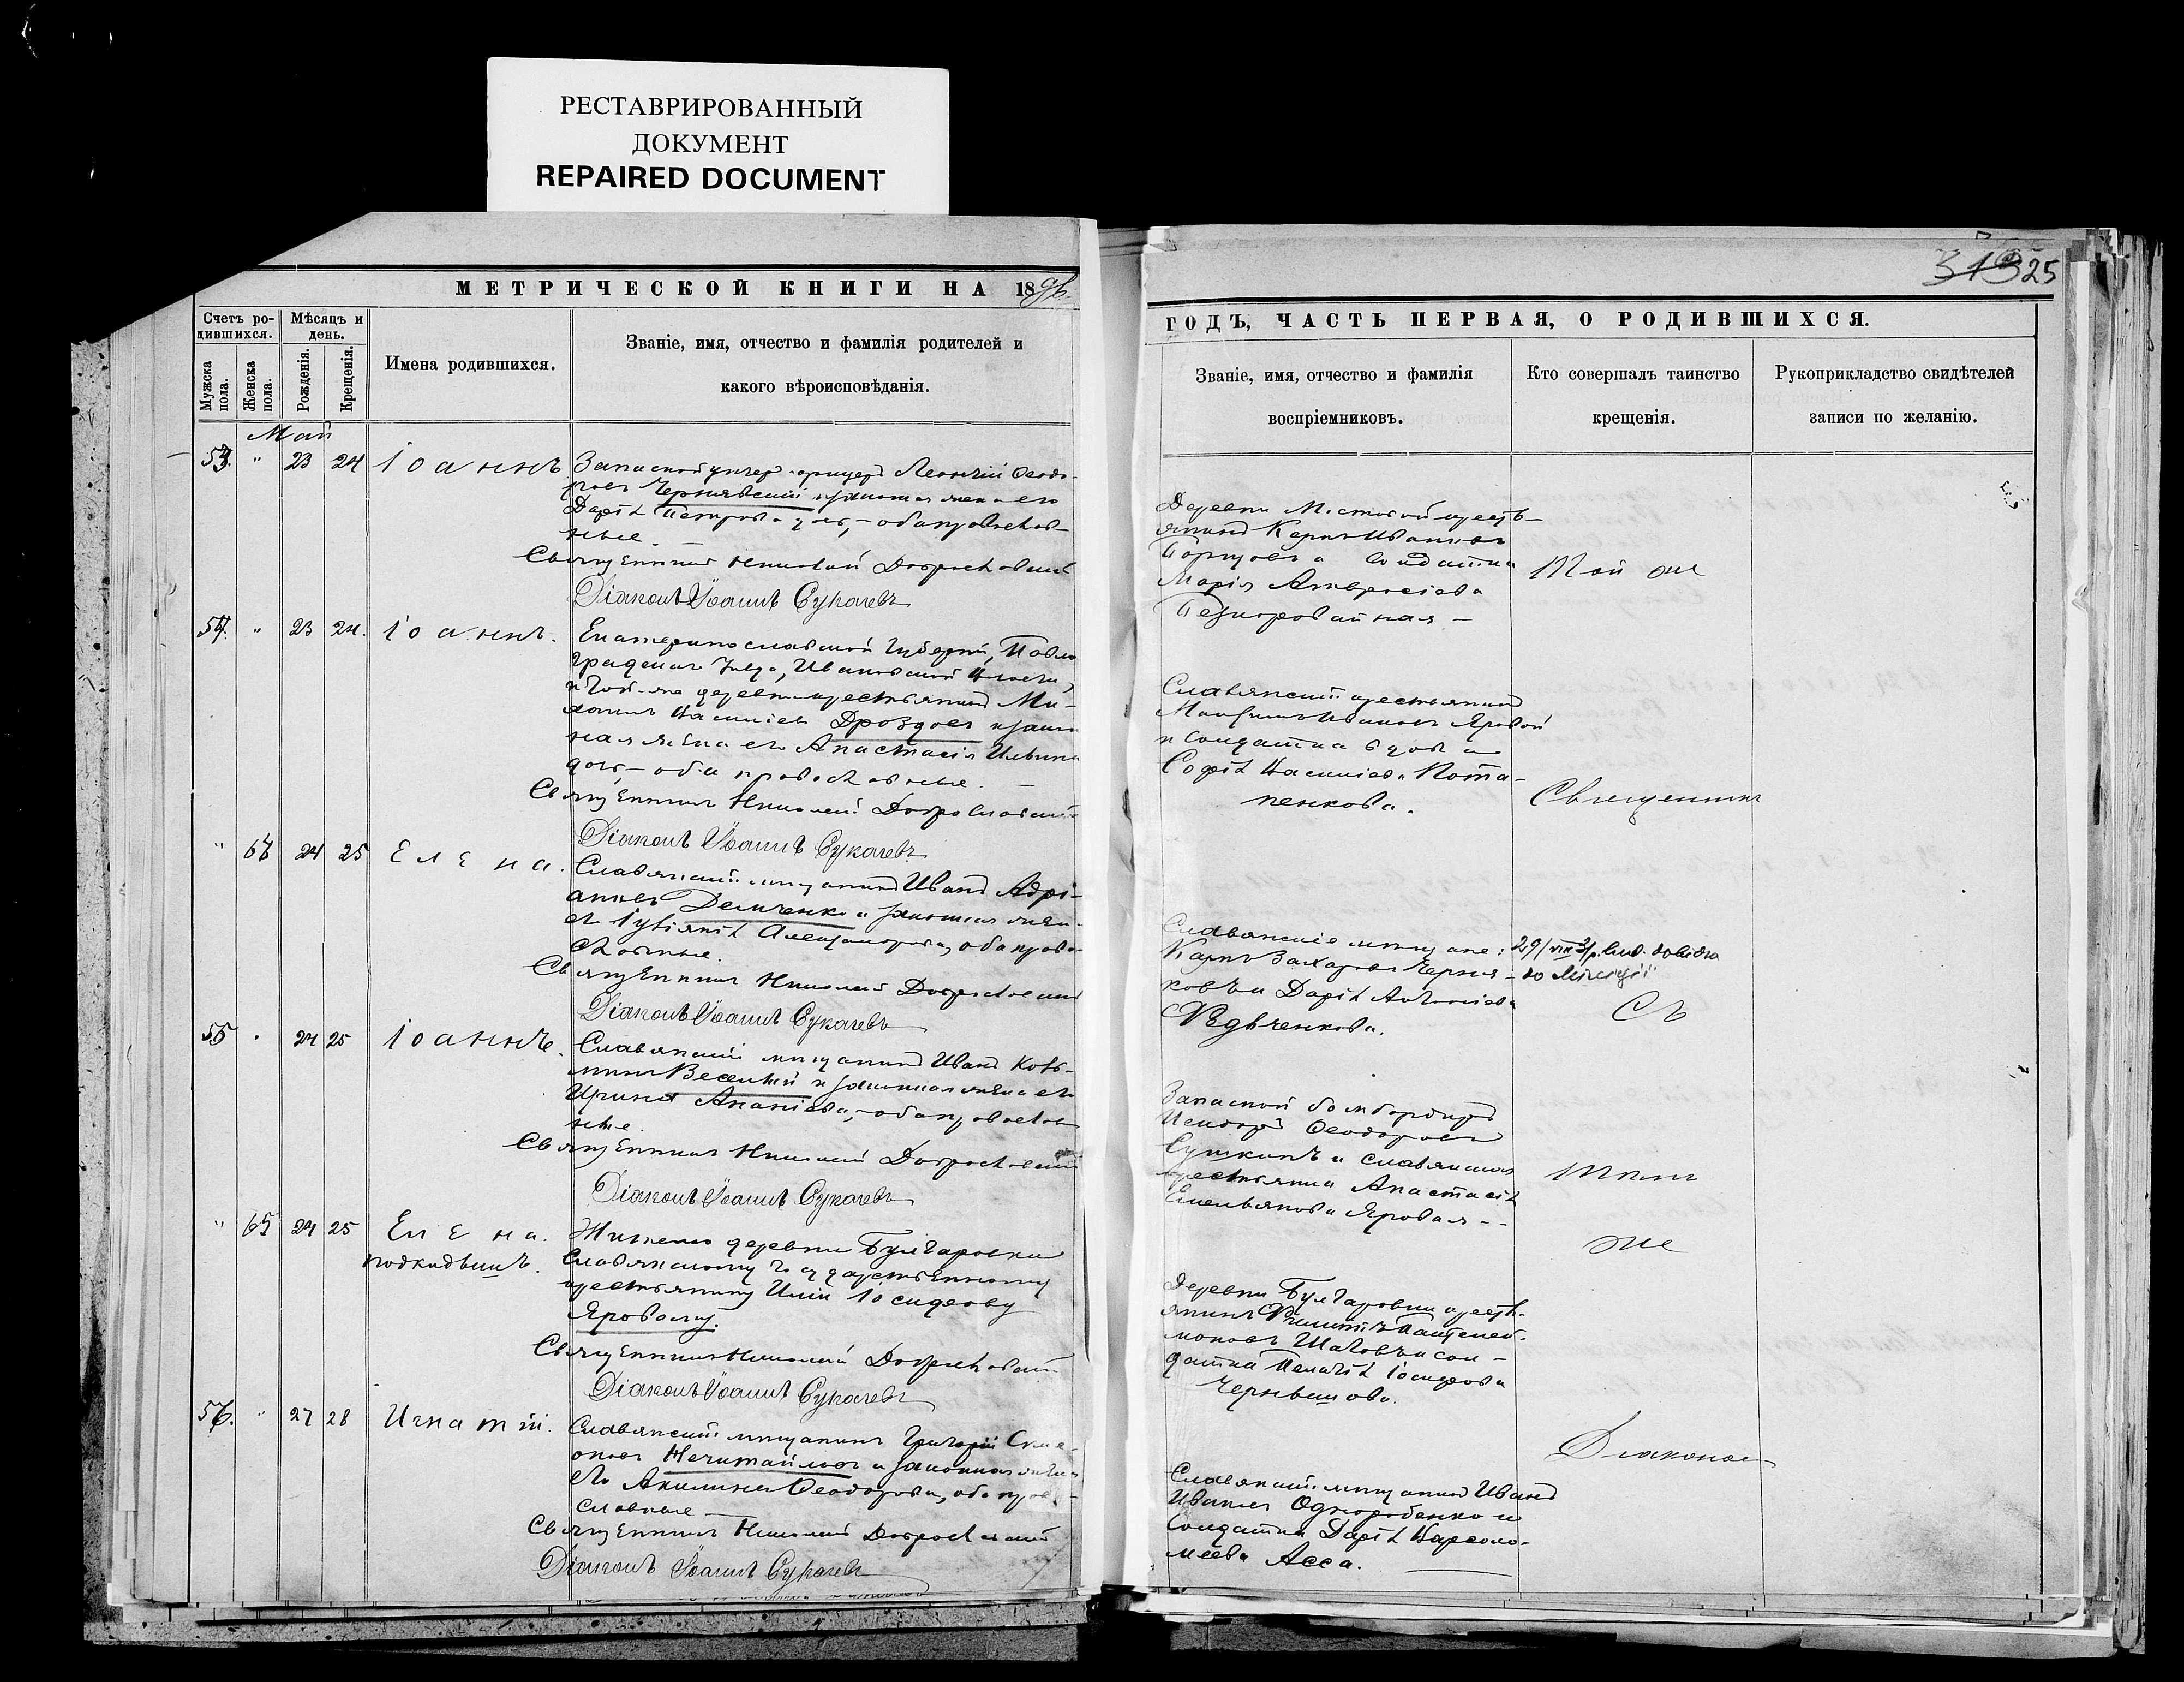 РЕСТАВРИРОВАННЫЙ
ДОКУМЕНТ
REPAIRED DOCUMENT
МЕТРИЧЕСКОЙ КНИГИ НА 1896.
Счетъ ро-
дившихся.
Мѣсяцъ и
день.
Мужска
пола.
Женска
пола.
Рожденія.
Крещенія.
Имена родившихся.
Званіе, имя, отчество и фамилія родителей и
какого вѣроисповѣданія.
Май
53. " 23 24 Іоаннъ
Запасной унтер-офицеръ Леонтій Ѳеодо-
ровъ Чернявский и законная жена его
Дарія Петрова дочь, – оба православ-
ные.
Священникъ Николай Доброславскій
Діаконъ Іоаннъ Сукачевъ
54. " 23 24. Іоаннъ.
Екатеринославской Губерніи, Павло
градскаго уѣзда, Ивановской волости,
и той-же деревни крестьянинъ Ми-
хаилъ Василіевъ Дроздовъ и закон
ная жена его Анастасія Ильина
дочь, – оба православные.
Священникъ Николай Доброславскій
Діаконъ Іоаннъ Сукачевъ
" 24 25 Елена.
Славянскій мѣщанинъ Иванъ Адрі-
ановъ Демченко и законная жена
его Іуліанія Александрова, оба право-
славные.
Священникъ Николай Доброславскій
Діаконъ Іоаннъ Сукачевъ
55 " 24 25 Іоаннъ.
Славянскій мѣщанинъ Иванъ Козь-
минъ Веселый и законная жена его
Ирина Ананіева, – оба православ
ные.
Священникъ Николай Доброславскій
Діаконъ Іоаннъ Сукачевъ
" 65 24 25 Елена.
подкидышъ.
Жителю деревни Булгаровки
Славянскому государственному
крестьянину Иліи Іосифову
Яровому.
Священникъ Николай Доброславскій
Діаконъ Іоаннъ Сукачевъ
56. " 27 28 Игнатій.
Славянскій мѣщанинъ Григорій Симе-
оновъ Нечитайловъ и законная жена
его Акилина Ѳеодорова, оба право-
славные
Священникъ Николай Доброславскій
Діаконъ Іоаннъ Сукачевъ
25
ГОДЪ, ЧАСТЬ ПЕРВАЯ, О РОДИВШИХСЯ.
Званіе, имя, отчество и фамилія
воспріемниковъ.
Кто совершалъ таинство
крещенія.
Рукоприкладство свидѣтелей
записи по желанію.
Деревни Мостовой кресть-
янинъ Карпъ Ивановъ
и Солдатка
Марія Амвросіева
Той же
Славянскій крестьянинъ
Ивановъ Яровой
и солдатка вдова
Софія Василіева Пота-
пенкова.
Священникъ
Славянскіе мѣщане:
Карпъ Захаровъ Черня-
ковъ и Дарія Антоніева
Ѳедченкова.
съ
Запасной бомбардиръ
Исидоръ Ѳеодоровъ
Сушкинъ и славянская
крестьянка Анастасія
Емельянова Яровая --
тѣмъ
же
Деревни Булгаровки кресть-
янинъ Филиппъ Пантелей-
моновъ Шаховъ и сол-
датка Пелагія Іосифова
Чернышова.
Діаконом
Славянскій мѣщанинъ Иванъ
Ивановъ Однороbенко и
Солдатка Дарія Варѳоло-
меева Асса.